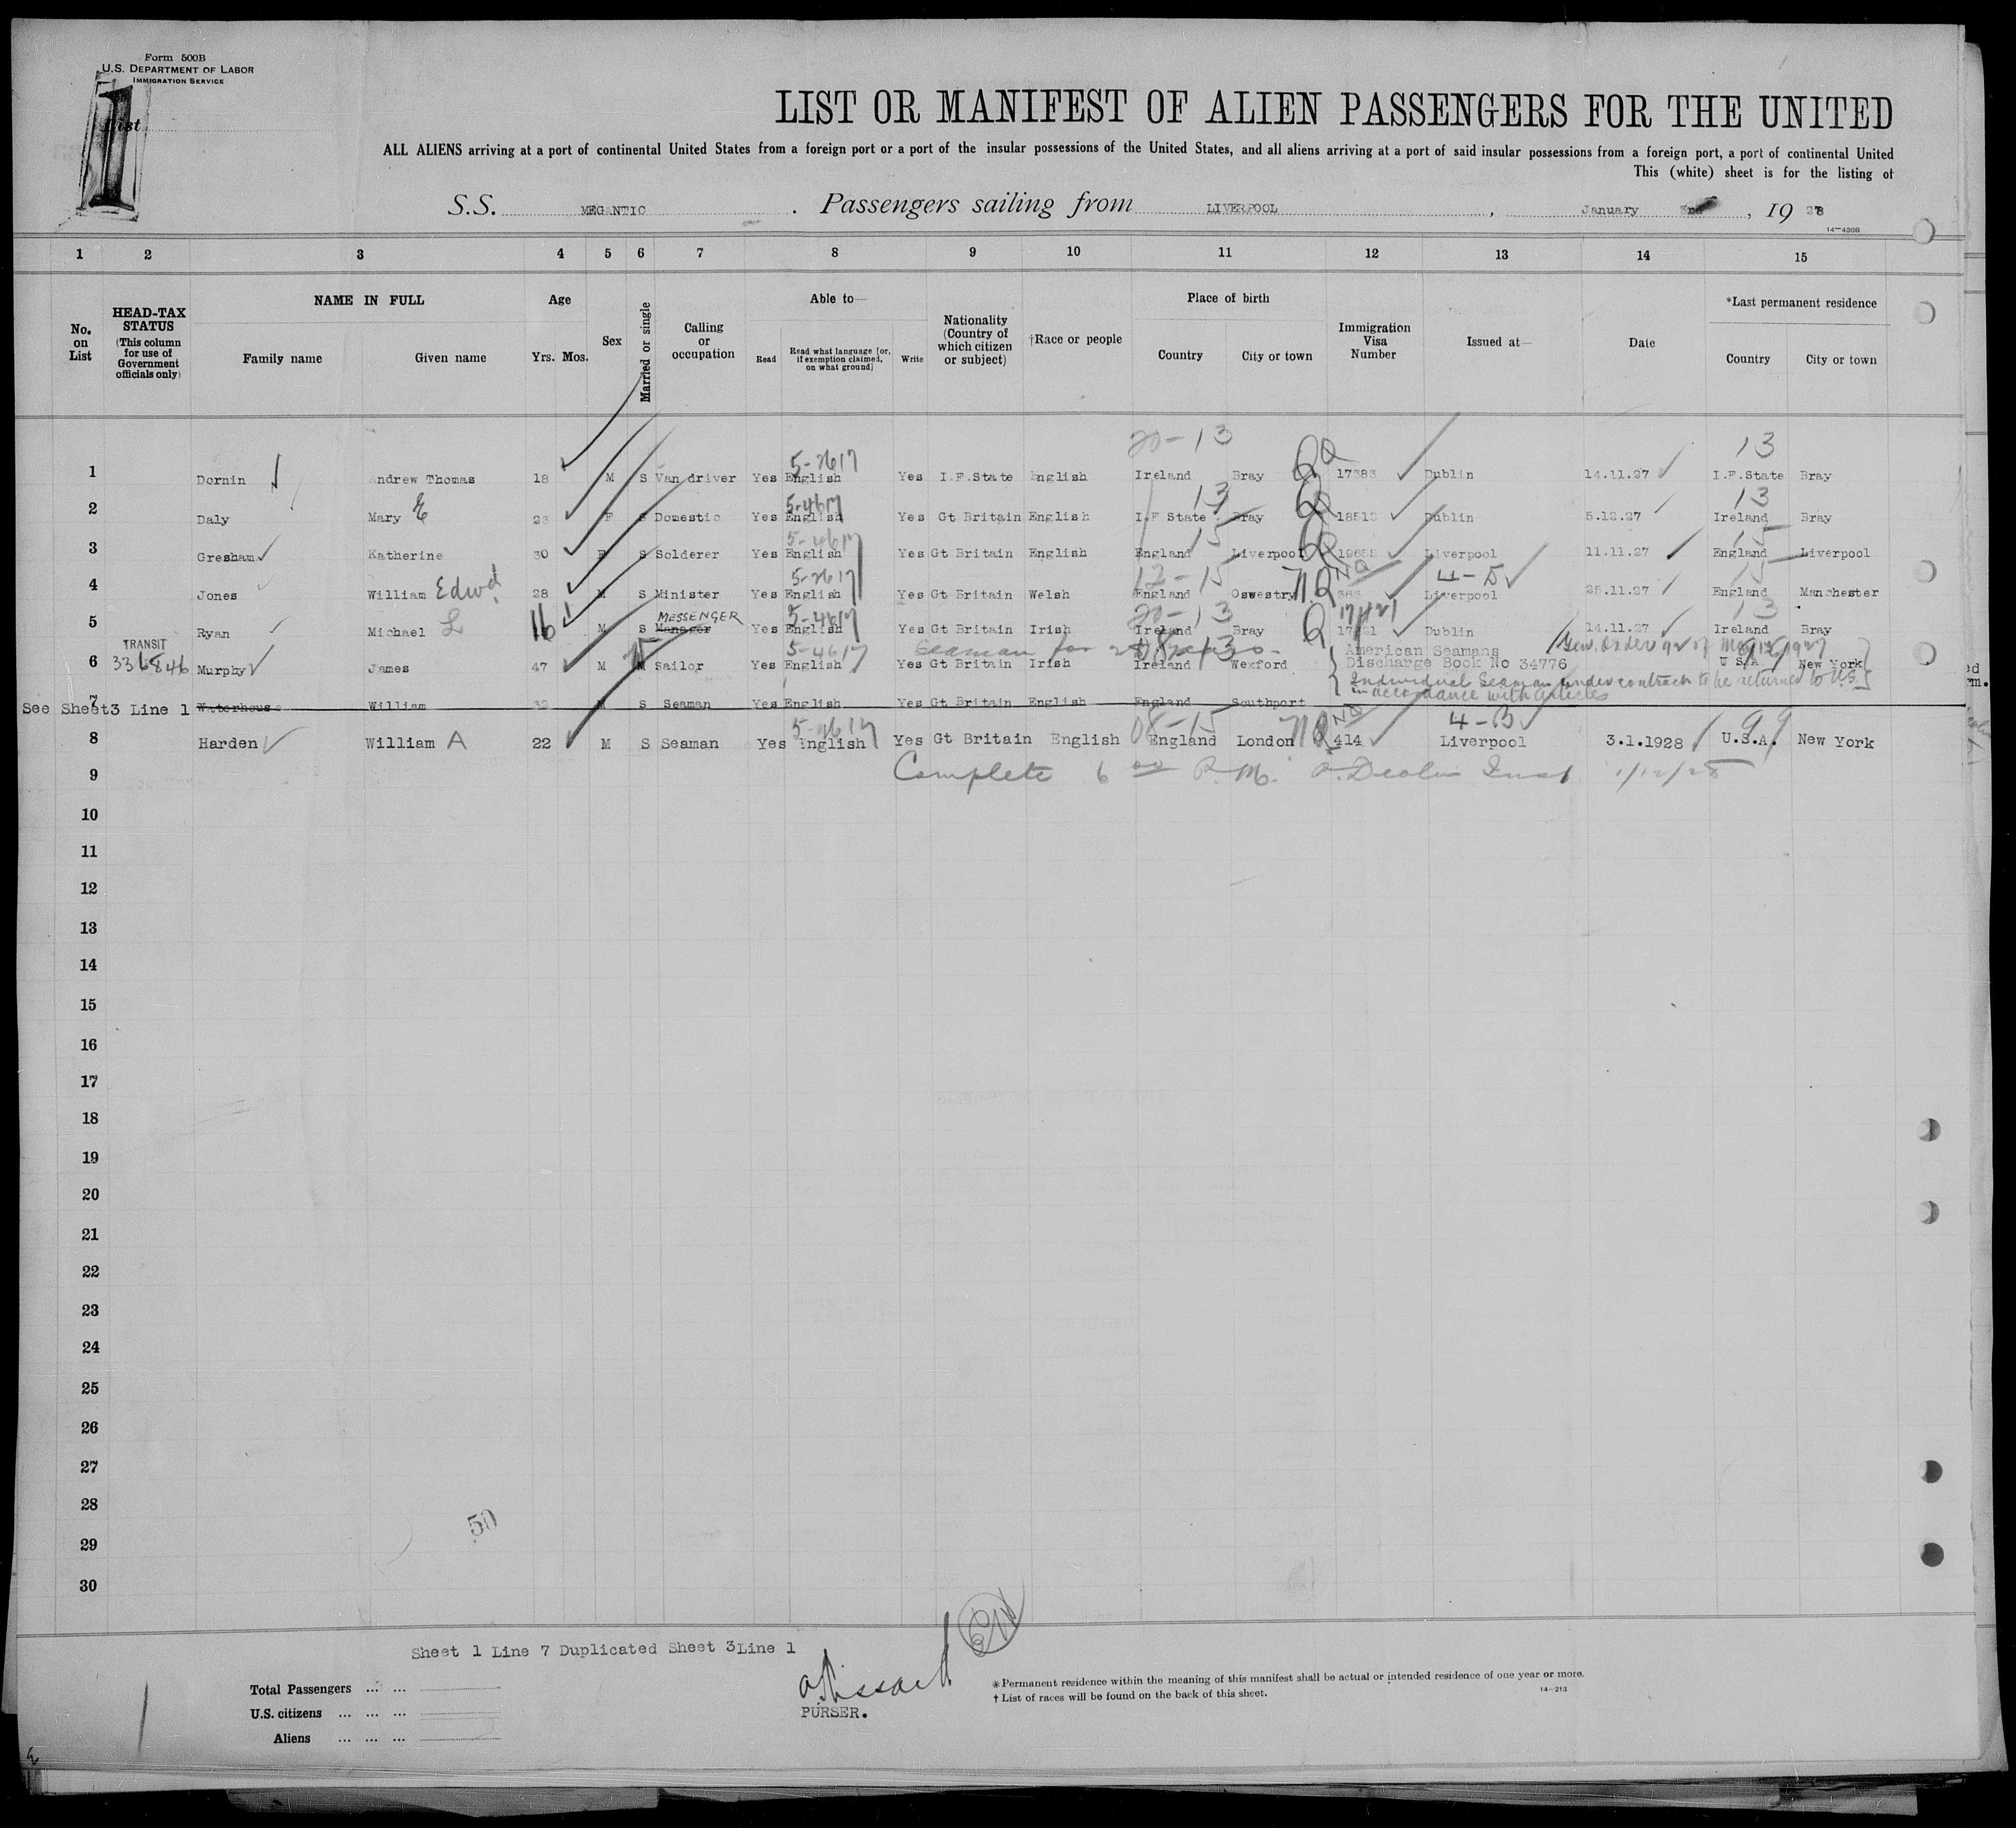 Form 500B
U.S. DEPARTMENT OF LABOR
IMMIGRATION SERVICE
1
List
LIST OR MANIFEST OF ALIEN PASSENGERS FOR THE UNITED
ALL ALIENS arriving at a port of continental United States from a foreign port or a port of the insular possessions of the United States, and all aliens arriving at a port of said insular possessions from a foreign port, a port of continental United
This (white) sheet is for the listing of
S.S. MEGANTIC. Passengers sailing from LIVERPOOL, January 3rd, 1928
14-430B
1 2 3 4 5 6 7 8 9 10 11 12 13 14 15
No. on List
HEAD-TAX STATUS (This column for use of Government officials only)
NAME IN FULL
Family name Given name
Age
Yrs. Mos.
Sex
Married or single
Calling or occupation
Able to—
Read Read what language [or, if exemption claimed, on what ground] Write
Nationality (Country of which citizen or subject)
†Race or people
Place of birth
Country City or town
Immigration Visa Number
Issued at—
Date
*Last permanent residence
Country City or town
20-13 13
5-2617
1 Dornin Andrew Thomas 18 M S Van driver Yes English Yes I.F.State English Ireland Bray 17383 Dublin 14.11.27 I.F.State Bray
5-4617 13 13
2 Daly Mary E 23 F S Domestic Yes English Yes Gt Britain English I.F State Bray 18512 Dublin 5.12.27 Ireland Bray
5-4617 15 15
3 Gresham Katherine 30 F S Solderer Yes English Yes Gt Britain English England Liverpool 19655 Liverpool 11.11.27 England Liverpool
5-2617 12-15 NQ 4-D 15
4 Jones William Edwd 28 M S Minister Yes English Yes Gt Britain Welsh England Oswestry 363 Liverpool 25.11.27 England Manchester
MESSENGER 5-4617 20-13 17421 13
5 Ryan Michael L 16 M S Manager Yes English Yes Gt Britain Irish Ireland Bray Q Dublin 14.11.27 Ireland Bray
TRANSIT 5-4617 Seaman for American Seamans Gen. Order 92 of
6 336846 Murphy James 47 M M Sailor Yes English Yes Gt Britain Irish Ireland Wexford Discharge Book No 34776 U S A New York
Individual Seaman under contract to be returned to U.S.
in accordance with Articles
See Sheet3 Line 1 7 Waterhouse William M S Seaman Yes English Yes Gt Britain English England Southport
5-4617 08-15 NQ 4-B 99
8 Harden William A 22 M S Seaman Yes English Yes Gt Britain English England London 414 Liverpool 3.1.1928 U.S.A. New York
9 Complete 6 00 P.M. 1/12/28
10
11
12
13
14
15
16
17
18
19
20
21
22
23
24
25
26
27
28
50
29
30
Sheet 1 Line 7 Duplicated Sheet 3Line 1
Total Passengers ... ...
U.S. citizens ... ... ...
Aliens ... ... ...
PURSER.
* Permanent residence within the meaning of this manifest shall be actual or intended residence of one year or more.
† List of races will be found on the back of this sheet.
14-213